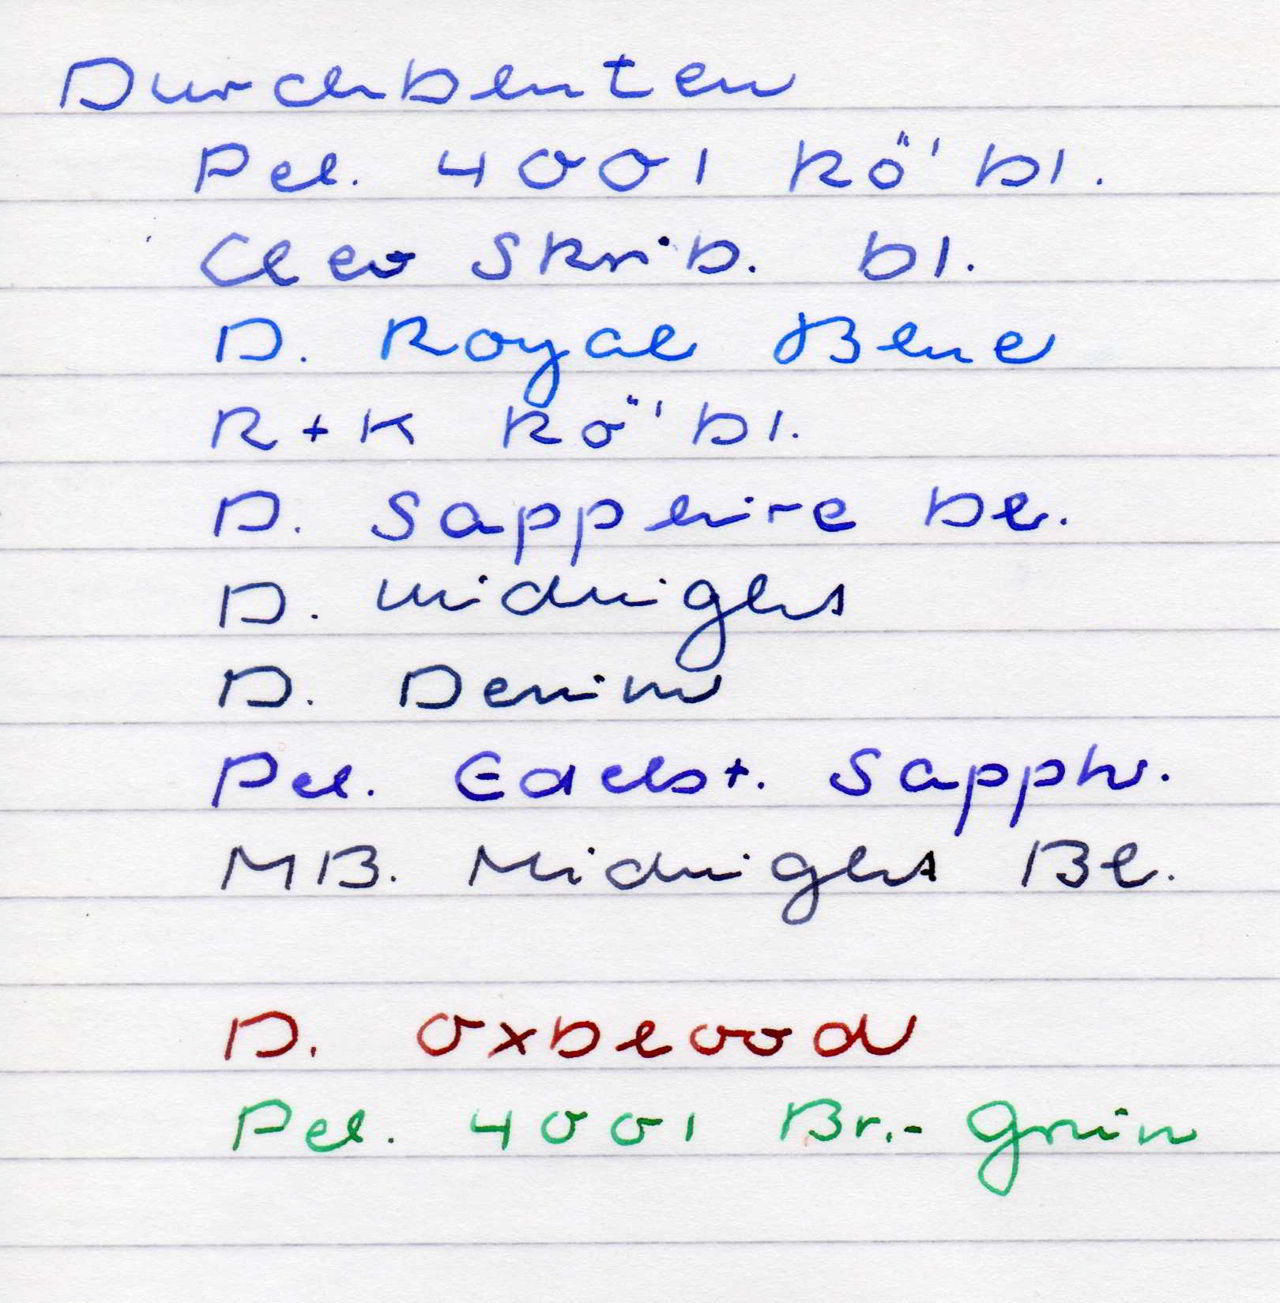 Durchbluten
Pel. 4001 Kö'bl.
Cleo Skrib. bl.
D. Royal Blue
R+K Kö'bl.
D. Sapphire Bl.
D. Midnight
D. Denim
Pel. Edelst. Sapph.
MB. Midnight Bl.
D. Oxblood
Pel. 4001 Br.-Grün